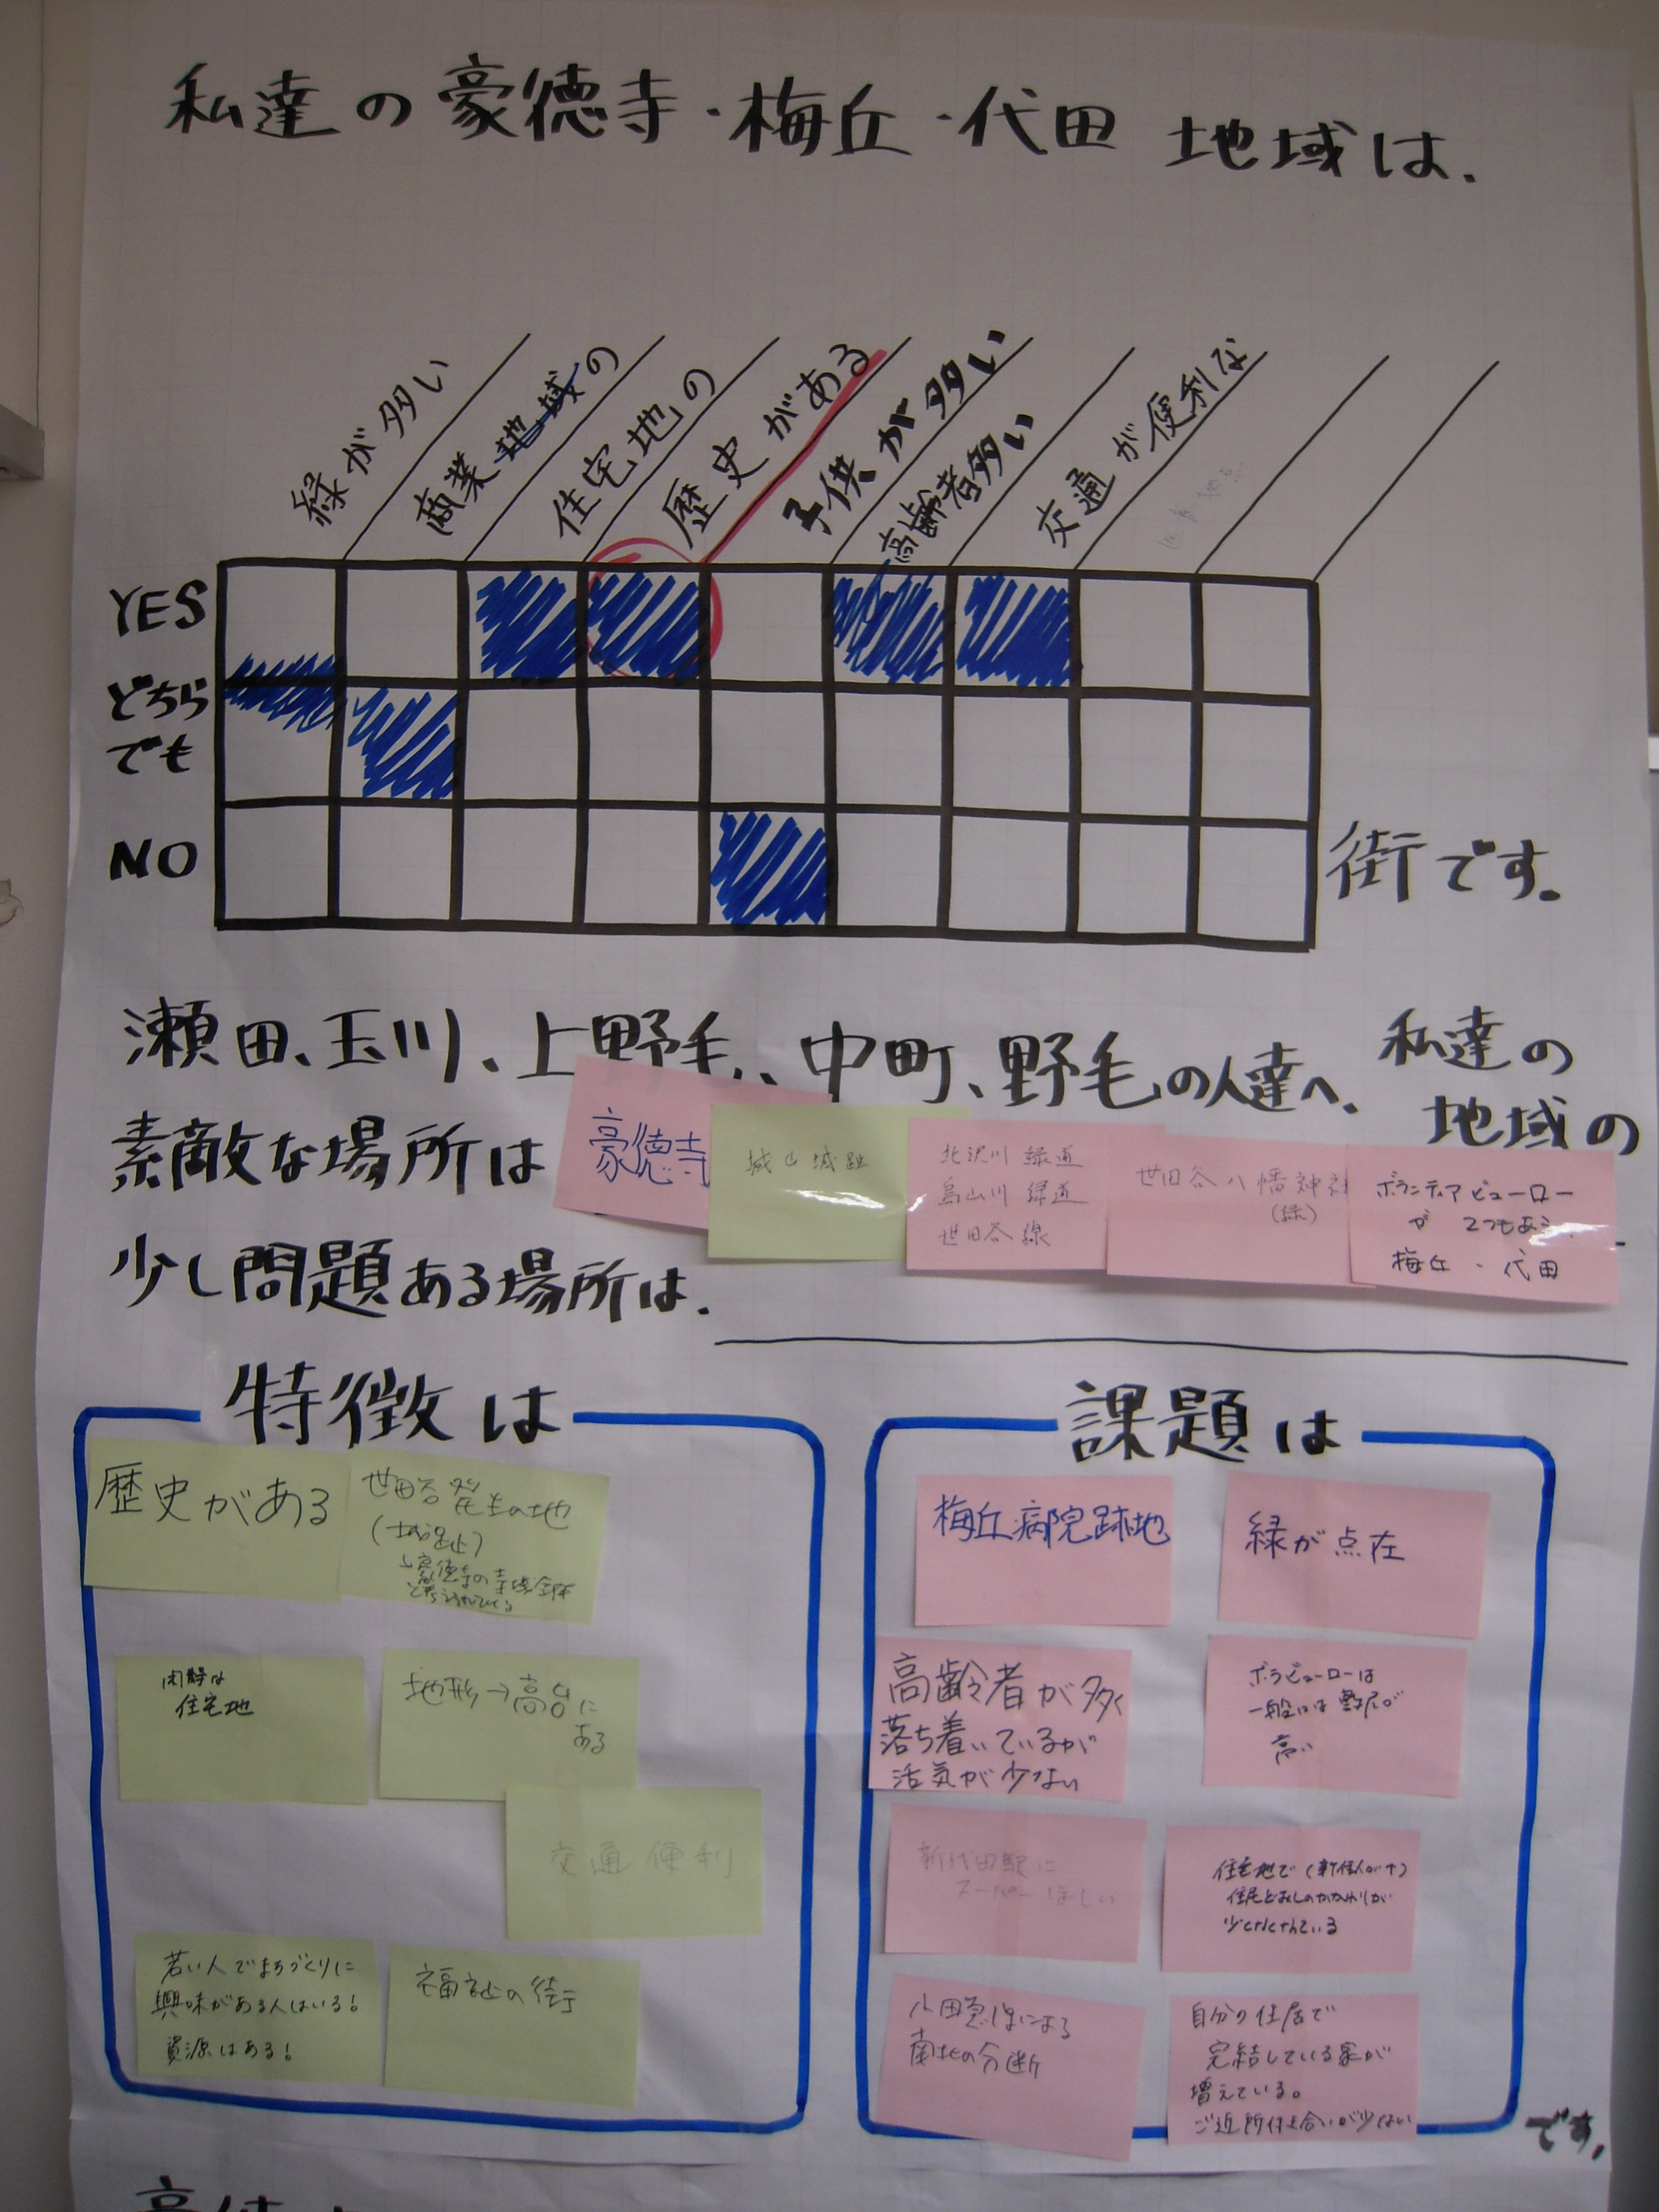 私達の豪徳寺・梅丘・代田 地域は、
緑が多い
商業地域の
住宅地の
歴史がある
子供が多い
高齢者多い
交通が便利な
YES
どちら
でも
NO
街です。
瀬田、玉川、上野毛、中町、野毛の人達へ、私達の
地域の
素敵な場所は
豪徳寺
城山城趾
北沢川 緑道
烏山川 緑道
世田谷線
世田谷八幡神社
(緑)
ボランティアビューロー
が 2つもある
梅丘・代田
少し問題ある場所は、
特徴は
歴史がある
世田谷発生の地
(城趾)
閑静な
住宅地
地形→高台に
ある
交通便利
若い人でまちづくりに
興味がある人はいる!
資源はある!
福祉の街
課題は
梅丘病院跡地
緑が点在
高齢者が多く
落ち着いているが
活気が少ない
ボラビューローは
一般には敷居が
高い
新代田駅に
スーパーほしい
住宅地で(新住人が↑)
住民どおしのかかわりが
少なくなっている
小田急線による
南北の分断
自分の住居で
完結している家が
増えている。
ご近所付き合いが少ない
です。